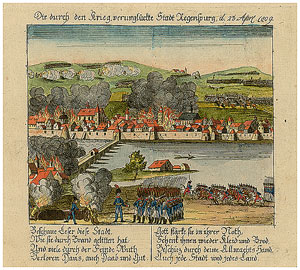 Die durch den Krieg, verunglückte Stadt Regensburg, d. 23 April, 1809.
Beschaue Leser diese Stadt,
Wie sie durch Brand gelitten hat.
Und viele durch der Feinde Wuth
Verloren Haus, auch Haab und Gut.
Gott stärke sie in ihrer Noth,
Schenk ihnen wieder Kleid und Brod,
Beschütz durch deine Allmachts Hand,
Auch jede Stadt und jedes Land.